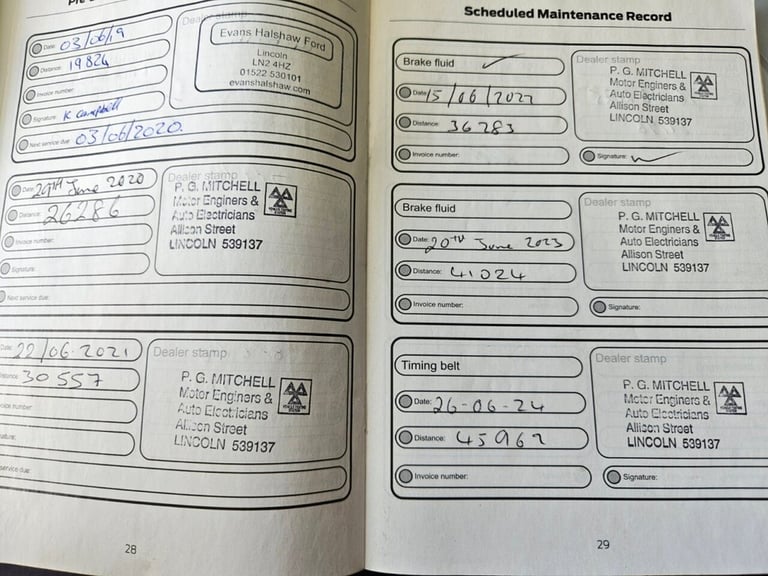 Date: 03/06/19
Distance: 19824
Invoice number:
Signature: K Campbell
Next service due: 03/06/2020.
Dealer stamp
Evans Halshaw Ford
Lincoln
LN2 4HZ
01522 530101
evanshalshaw.com
Date: 29TH June 2020
Distance: 26286
Invoice number:
Signature:
Next service due:
Dealer stamp
P. G. MITCHELL
Motor Enginers &
Auto Electricians
Allison Street
LINCOLN 539137
Date: 22/06.2021
Distance: 30557
Invoice number:
service due:
Dealer stamp
P. G. MITCHELL
Motor Enginers &
Auto Electricians
Allison Street
LINCOLN 539137
28
Scheduled Maintenance Record
Brake fluid
Date: 15/06/2022
Distance: 36283
Invoice number:
Dealer stamp
P. G. MITCHELL
Motor Enginers &
Auto Electricians
Allison Street
LINCOLN 539137
Signature:
Brake fluid
Date: 20TH June 2023
Distance: 41024
Invoice number:
Dealer stamp
P. G. MITCHELL
Motor Enginers &
Auto Electricians
Allison Street
LINCOLN 539137
Signature:
Timing belt
Date: 26-06-24
Distance: 45962
Invoice number:
Dealer stamp
P. G. MITCHELL
Motor Enginers &
Auto Electricians
Allison Street
LINCOLN 539137
Signature:
29